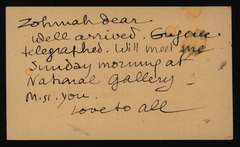 Zohmah dear
Well arrived. Eugene
telegraphed. Will meet me
Sunday morning at
National Gallery –
Miss you.
Love to all